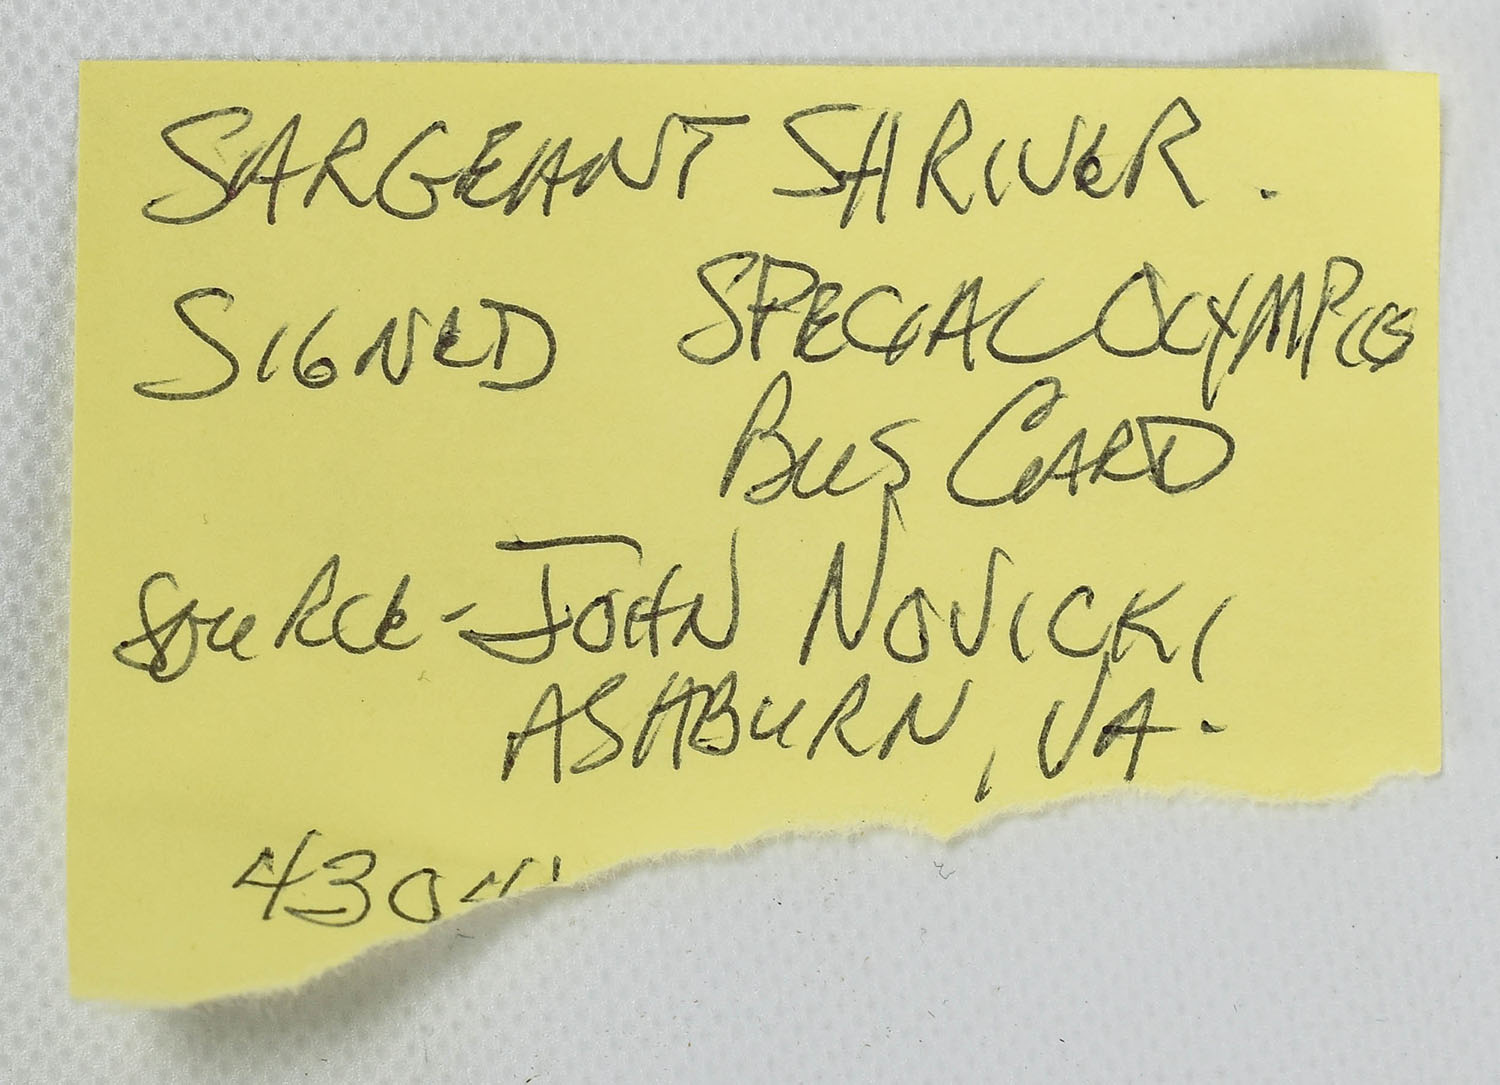 SARGEANT SHRIVER.
SIGNED SPECIAL OLYMPICS
BUS CARD
SOURCE - JOHN NOVICKI
ASHBURN, VA.
430